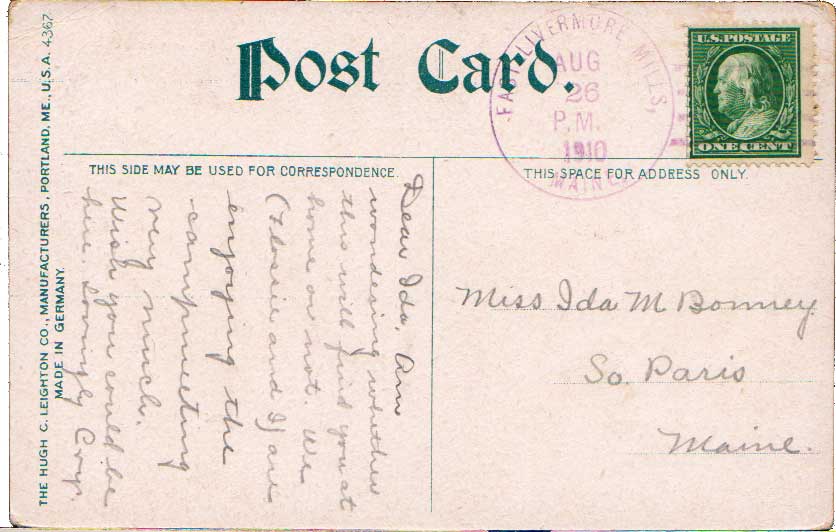 Post Card.
EAST LIVERMORE MILLS,
AUG
26
P.M.
1910
MAINE.
U.S. POSTAGE
ONE CENT
THIS SIDE MAY BE USED FOR CORRESPONDENCE.
THIS SPACE FOR ADDRESS ONLY.
Dear Ida, Am
wondering whether
this will find you at
home or not. We
(Flossie and I) are
enjoying the
campmeeting
very much.
Wish you could be
here. Lovingly
Miss Ida M Bonney
So. Paris
Maine.
THE HUGH C. LEIGHTON CO., MANUFACTURERS, PORTLAND, ME., U.S.A. 4367
MADE IN GERMANY.